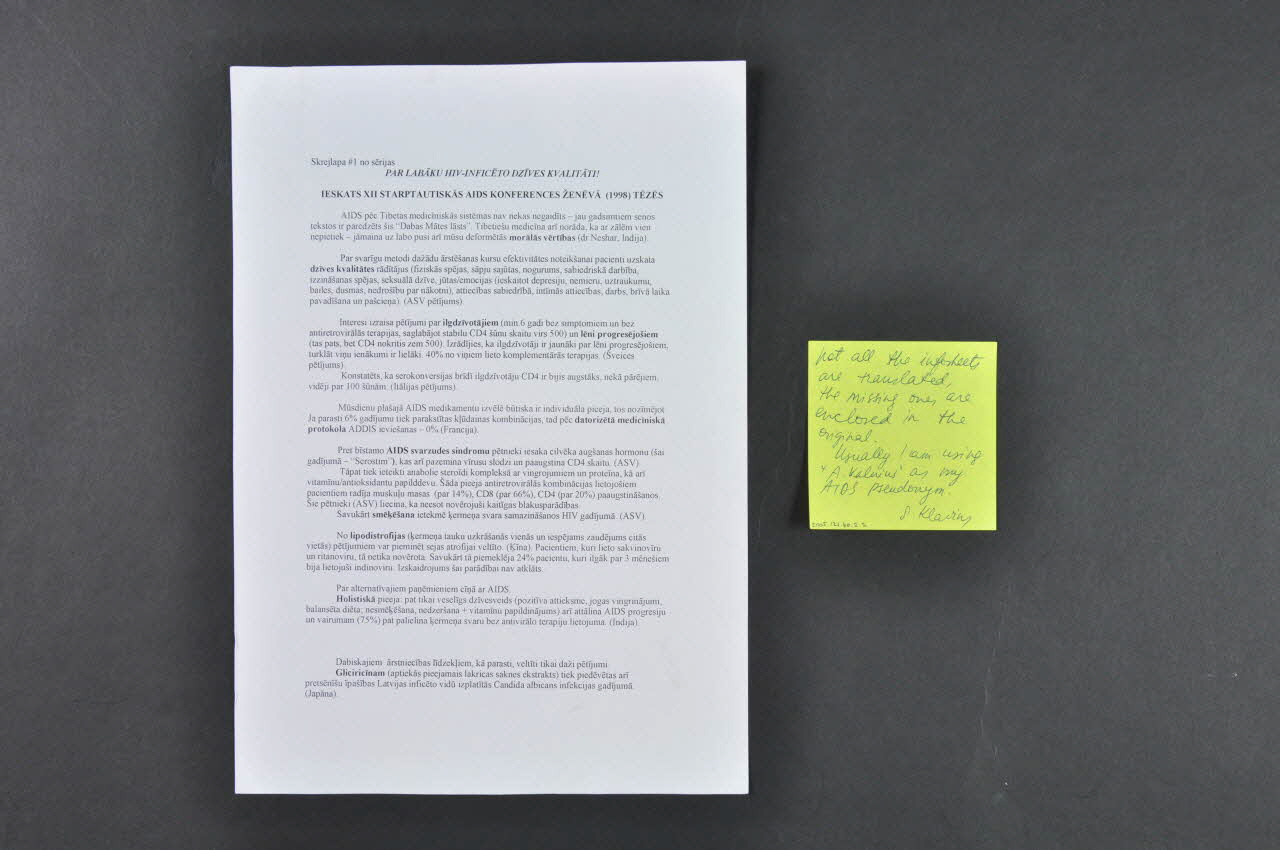 Skrejlapa #1 no sērijas
PAR LABĀKU HIV-INFICĒTO DZĪVES KVALITĀTI!
IESKATS XII STARPTAUTISKĀS AIDS KONFERENCES ŽENĒVĀ (1998) TĒZĒS
AIDS pēc Tibetas medicīniskās sistēmas nav nekas negaidīts – jau gadsimtiem senos
tekstos ir paredzēts šis “Dabas Mātes lāsts”. Tibetiešu medicīna arī norāda, ka ar zālēm vien
nepietiek – jāmaina uz labo pusi arī mūsu deformētās morālās vērtības (dr Neshar, Indija).
Par svarīgu metodi dažādu ārstēšanas kursu efektivitātes noteikšanai pacienti uzskata
dzīves kvalitātes rādītājus (fiziskās spējas, sāpju sajūtas, nogurums, sabiedriskā darbība,
izzināšanas spējas, seksuālā dzīve, jūtas/emocijas (ieskaitot depresiju, nemieru, uztraukumu,
bailes, dusmas, nedrošību par nākotni), attiecības sabiedrībā, intīmās attiecības, darbs, brīvā laika
pavadīšana un pašcieņa). (ASV pētījums).
Interesi izraisa pētījumi par ilgdzīvotājiem (min.6 gadi bez simptomiem un bez
antiretrovirālās terapijas, saglabājot stabilu CD4 šūnu skaitu virs 500) un lēni progresējošiem
(tas pats, bet CD4 nokritis zem 500). Izrādījies, ka ilgdzīvotāji ir jaunāki par lēni progresējošiem,
turklāt viņu ienākumi ir lielāki. 40% no viņiem lieto komplementārās terapijas. (Šveices
pētījums).
Konstatēts, ka serokonversijas brīdī ilgdzīvotāju CD4 ir bijis augstāks, nekā pārējiem,
vidēji par 100 šūnām. (Itālijas pētījums).
Mūsdienu plašajā AIDS medikamentu izvēlē būtiska ir individuāla pieeja, tos nozīmējot.
Ja parasti 6% gadījumu tiek parakstītas kļūdainas kombinācijas, tad pēc datorizētā medicīniskā
protokola ADDIS ieviešanas – 0% (Francija).
Pret bīstamo AIDS svarzudes sindromu pētnieki iesaka cilvēka augšanas hormonu (šai
gadījumā – “Serostim”), kas arī pazemina vīrusu slodzi un paaugstina CD4 skaitu. (ASV)
Tāpat tiek ieteikti anabolie steroīdi kompleksā ar vingrojumiem un proteīna, kā arī
vitamīnu/antioksidantu papilddevu. Šāda pieeja antiretrovirālās kombinācijas lietojošiem
pacientiem radīja muskuļu masas (par 14%), CD8 (par 66%), CD4 (par 20%) paaugstināšanos.
Šie pētnieki (ASV) liecina, ka neesot novērojuši kaitīgas blakusparādības.
Savukārt smēķēšana ietekmē ķermeņa svara samazināšanos HIV gadījumā. (ASV).
No lipodistrofijas (ķermeņa tauku uzkrāšanās vienās un iespējams zaudējums citās
vietās) pētījumiem var pieminēt sejas atrofijai veltīto. (Ķīna). Pacientiem, kuri lieto sakvinovīru
un ritanovīru, tā netika novērota. Savukārt tā piemeklēja 24% pacientu, kuri ilgāk par 3 mēnešiem
bija lietojuši indinovīru. Izskaidrojums šai parādībai nav atklāts.
Par alternatīvajiem paņēmieniem cīņā ar AIDS.
Holistiskā pieeja: pat tikai veselīgs dzīvesveids (pozitīva attieksme, jogas vingrinājumi,
balansēta diēta, nesmēķēšana, nedzeršana + vitamīnu papildinājums) arī attālina AIDS progresiju
un vairumam (75%) pat palielina ķermeņa svaru bez antivirālo terapiju lietojuma. (Indija).
Dabiskajiem ārstniecības līdzekļiem, kā parasti, veltīti tikai daži pētījumi.
Gliciricīnam (aptiekās pieejamais lakricas saknes ekstrakts) tiek piedēvētas arī
pretsēnīšu īpašības Latvijas inficēto vidū izplatītās Candida albicans infekcijas gadījumā.
(Japāna).
not all the infosheets
are translated,
the missing ones are
enclosed in the
original.
Usually I am using
"A. Kalnins" as my
AIDS pseudonym.
S. Klavins